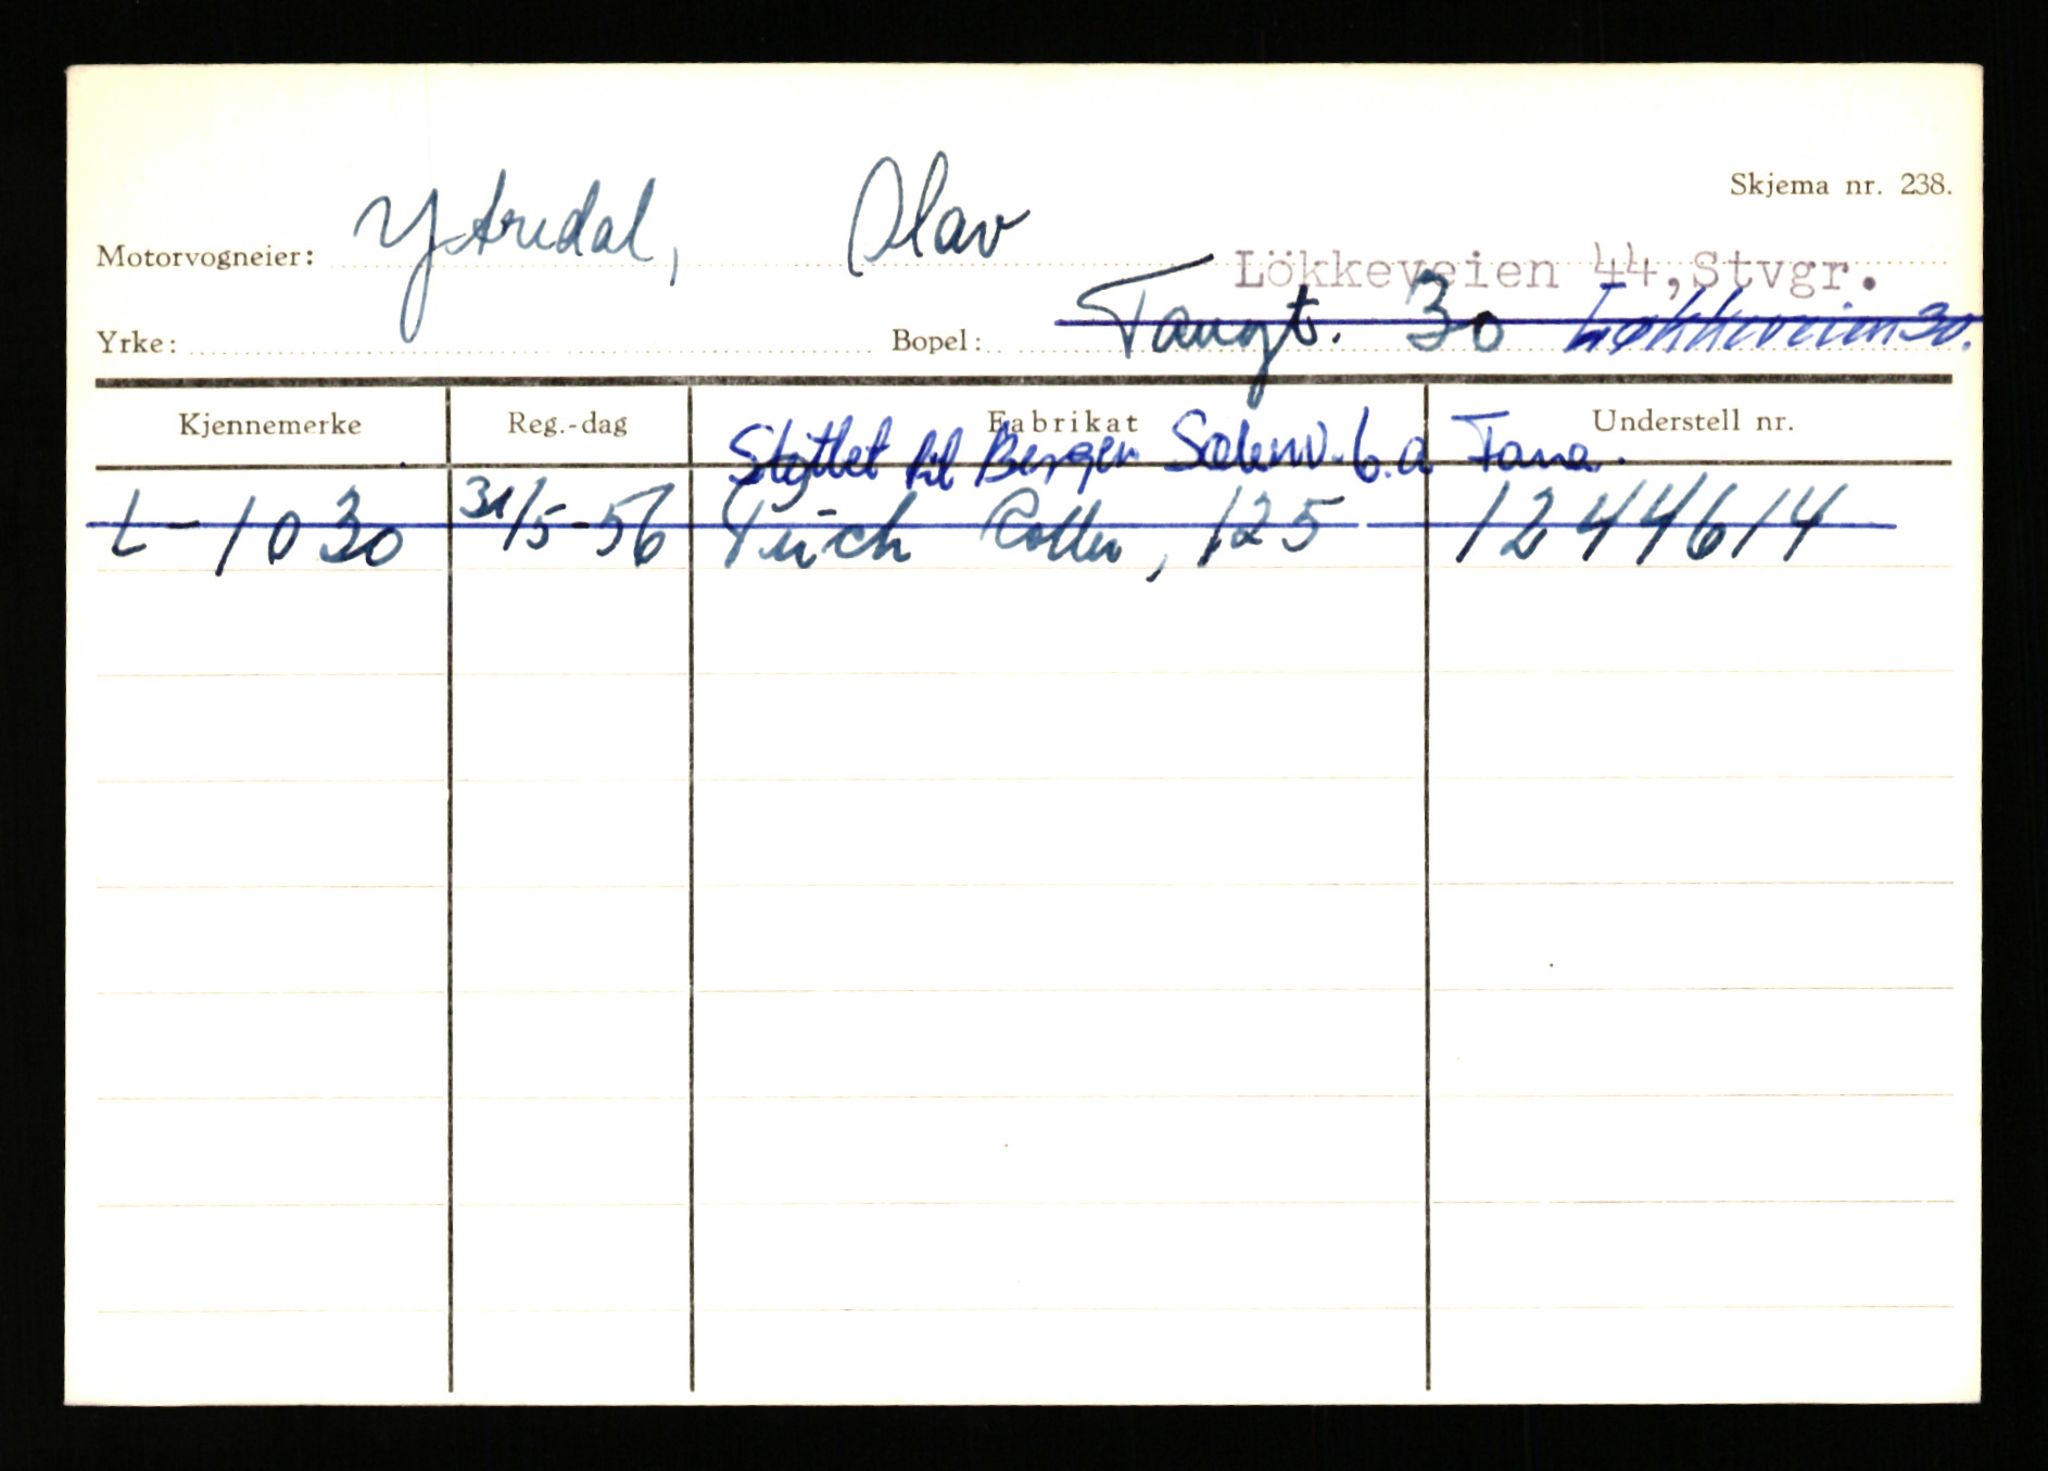 Skjema nr. 238.
Motorvogneier: Ytredal, Olav
Lökkeveien 44, Stvgr.
Yrke: Bopel: Taugt. 30 Løkkeveien 30.
Kjennemerke Reg.-dag Fabrikat Understell nr.
Slyttet til Bergen Solenv. 6.a Fana.
L-1030 31/5-56 Püch Roller, 125 1244614